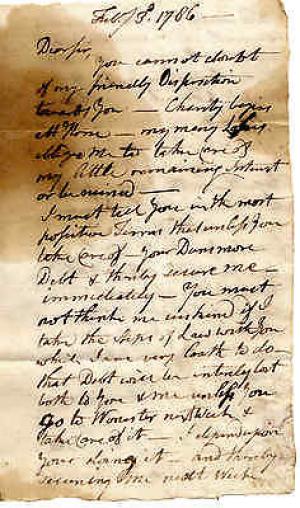 Feby 3d. 1786 —
Dear Sir
You cannot doubt
of my friendly Disposition
towards You — Charity begins
at Home — my many Losses
oblige me to take Care of
my little remaining Interest
or be ruined —
I must tell You in the most
positive Terms that unless You
take Care of — Your Dunsmore
Debt & thereby secure me —
immediately — You must
not think me unkind if I
take the Steps of Law with You
which I am very loath to do —
that Debt will be intirely lost
both to You & me unless You
go to Worcester next Week &
take Care of it — I depend upon
Your doing it — and thereby
securing me next Week